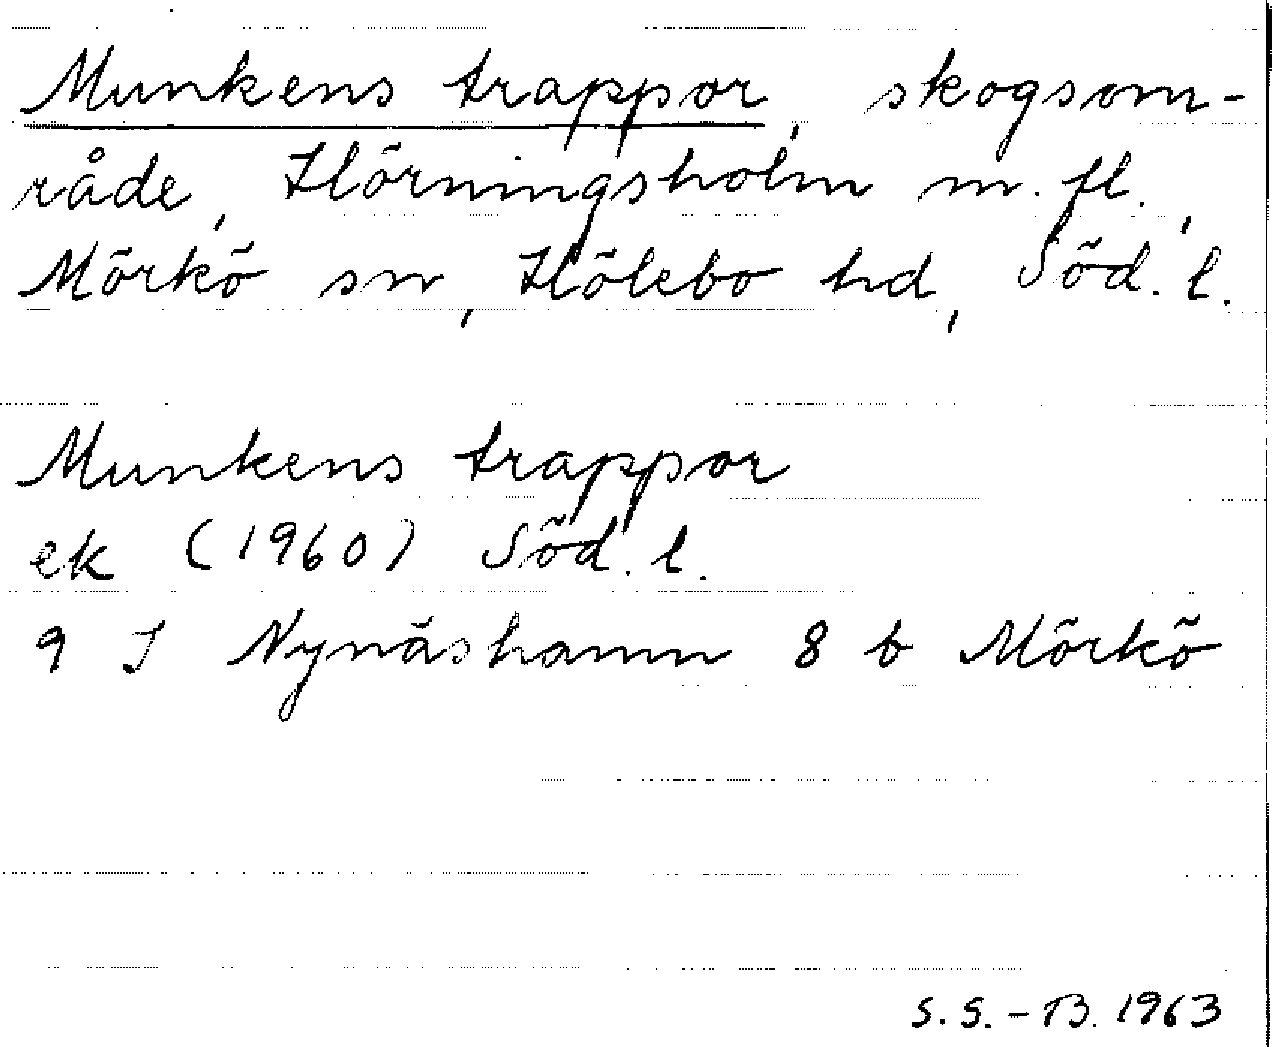 Munkens trappor, skogsom-
råde, Hörningsholm m. fl.,
Mörkö sn, Hölebo hd, Söd. l.
Munkens trappor
ek (1960) Söd. l.
9 I Nynäshamn 8 b Mörkö
S. S. - B. 1963